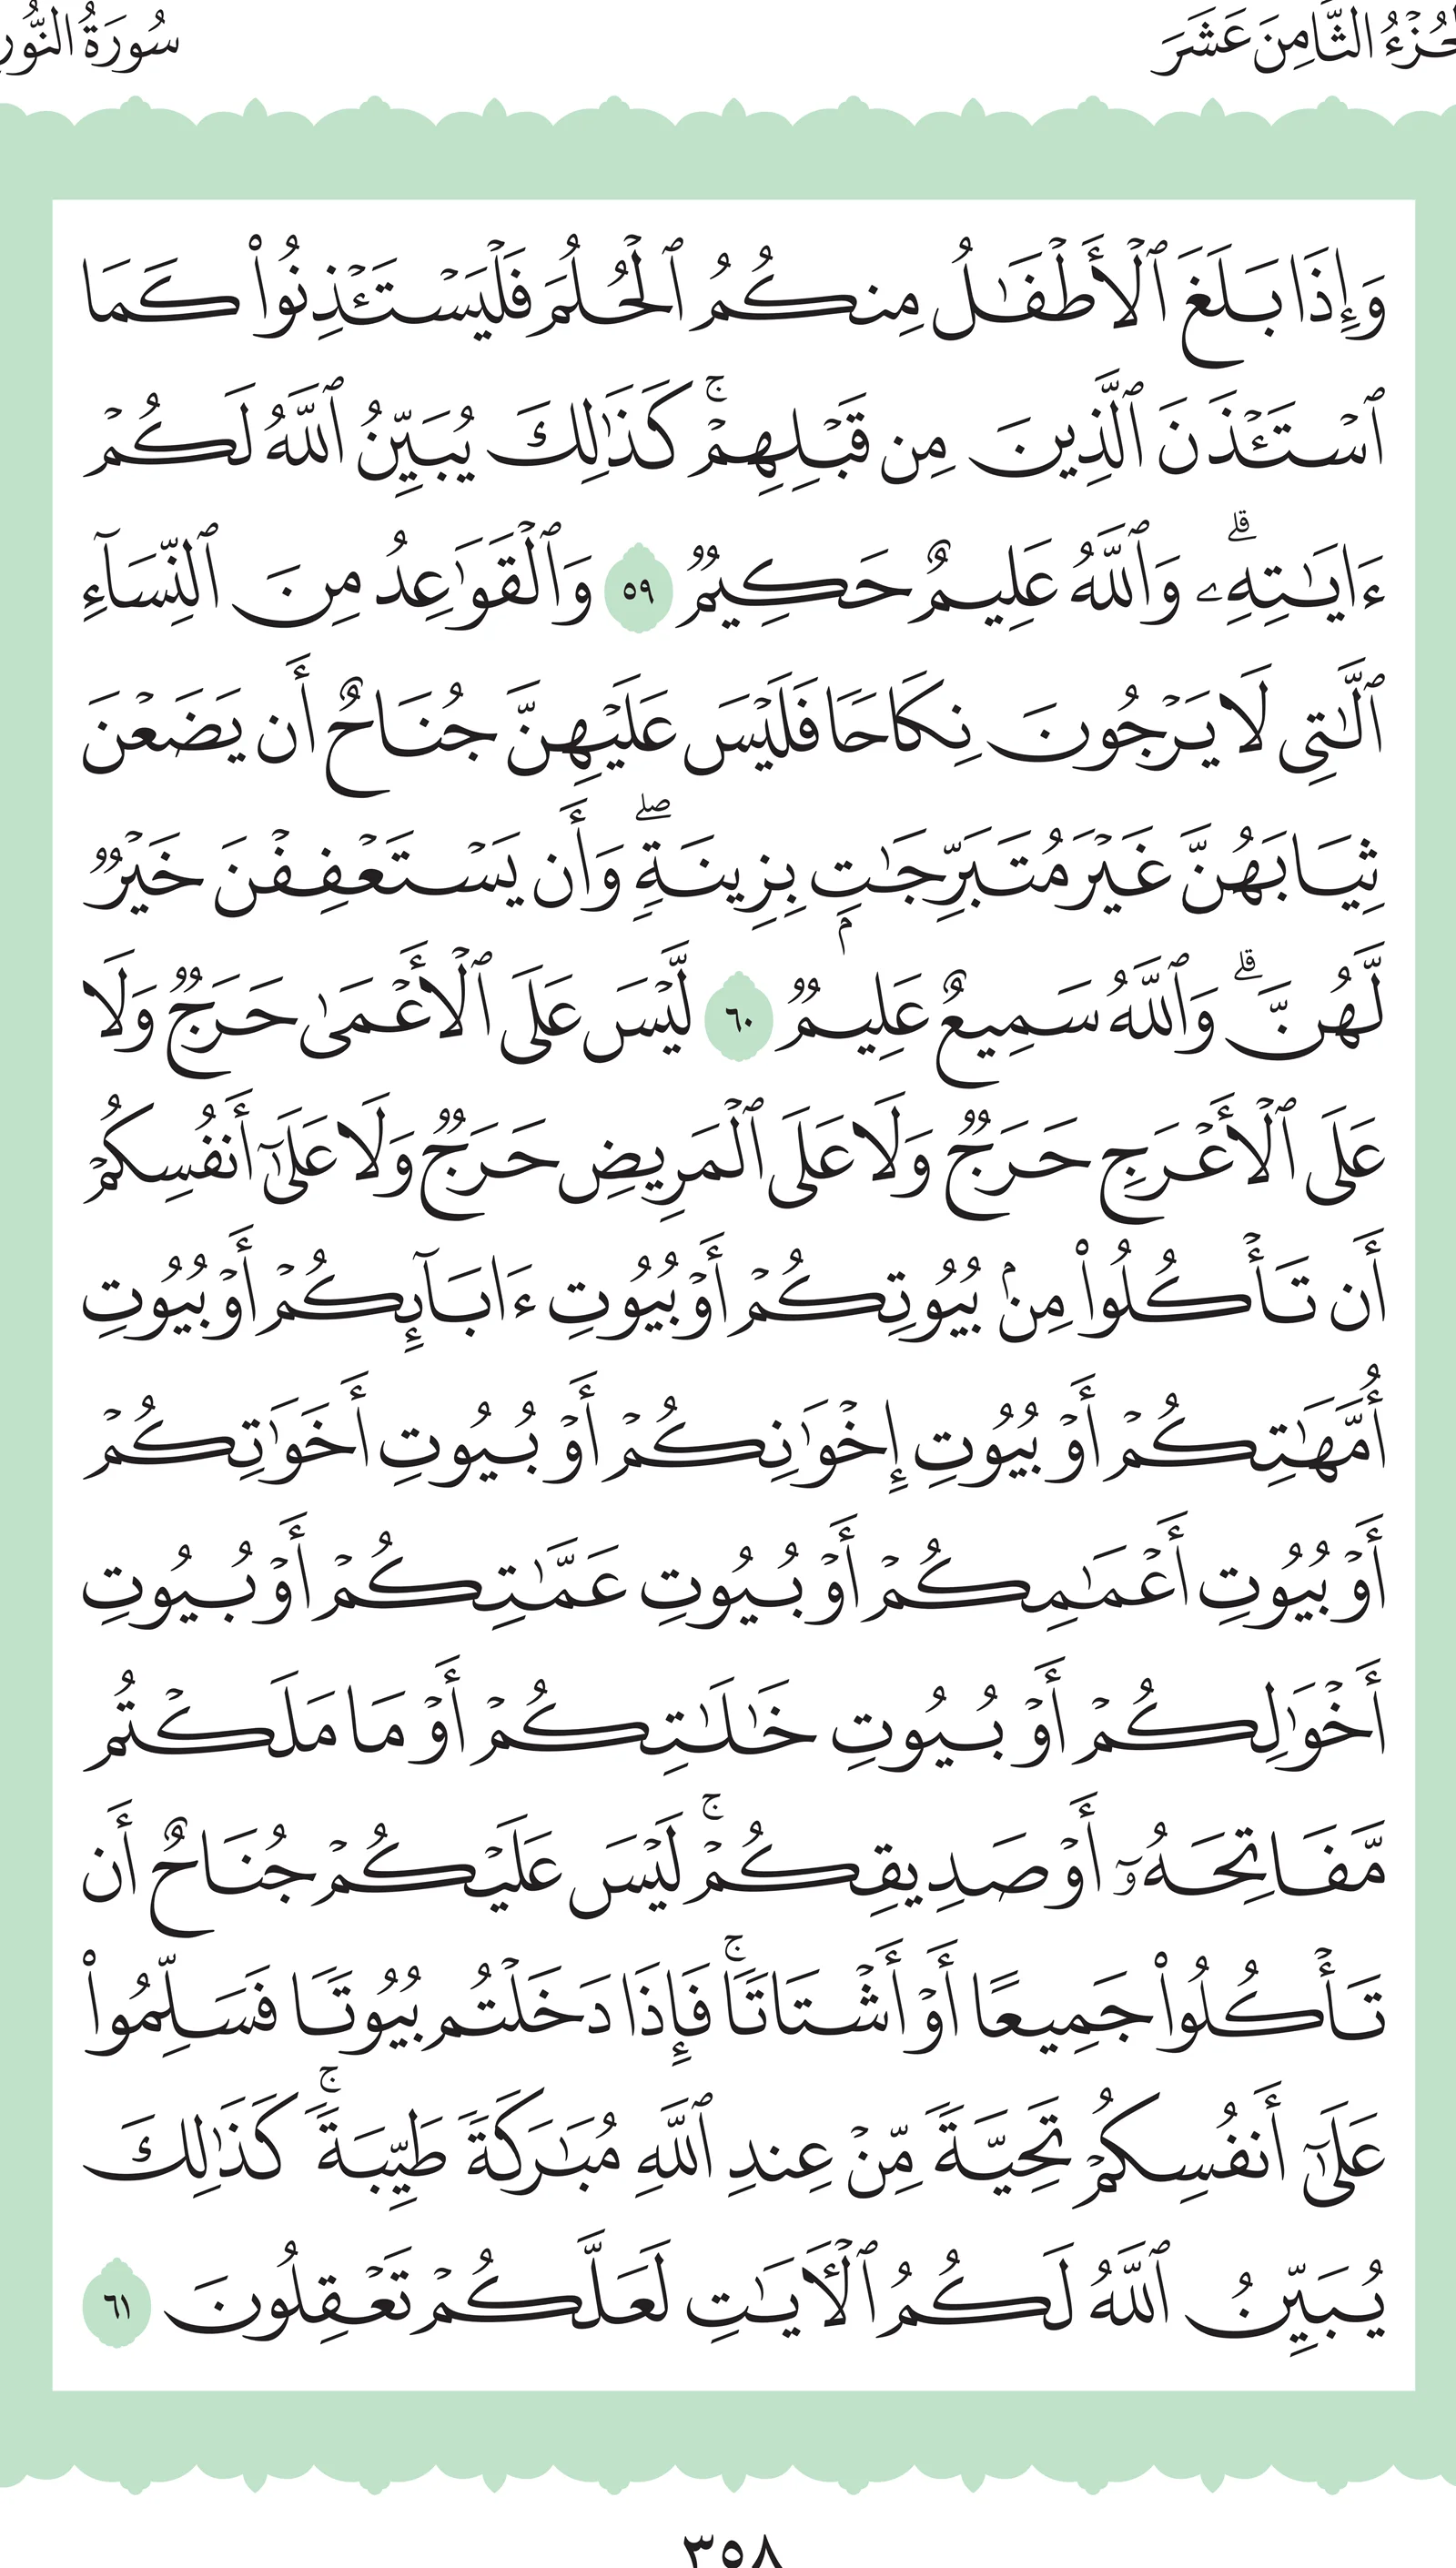 الجُزْءُ الثَّامِنَ عَشَرَ
سُورَةُ النُّورِ
وَإِذَا بَلَغَ ٱلۡأَطۡفَٰلُ مِنكُمُ ٱلۡحُلُمَ فَلۡيَسۡتَـٔۡذِنُواْ كَمَا
ٱسۡتَـٔۡذَنَ ٱلَّذِينَ مِن قَبۡلِهِمۡۚ كَذَٰلِكَ يُبَيِّنُ ٱللَّهُ لَكُمۡ
ءَايَٰتِهِۦۗ وَٱللَّهُ عَلِيمٌ حَكِيمٞ ٥٩ وَٱلۡقَوَٰعِدُ مِنَ ٱلنِّسَآءِ
ٱلَّٰتِي لَا يَرۡجُونَ نِكَاحٗا فَلَيۡسَ عَلَيۡهِنَّ جُنَاحٌ أَن يَضَعۡنَ
ثِيَابَهُنَّ غَيۡرَ مُتَبَرِّجَٰتِۭ بِزِينَةٖۖ وَأَن يَسۡتَعۡفِفۡنَ خَيۡرٞ
لَّهُنَّۗ وَٱللَّهُ سَمِيعٌ عَلِيمٞ ٦٠ لَّيۡسَ عَلَى ٱلۡأَعۡمَىٰ حَرَجٞ وَلَا
عَلَى ٱلۡأَعۡرَجِ حَرَجٞ وَلَا عَلَى ٱلۡمَرِيضِ حَرَجٞ وَلَا عَلَىٰٓ أَنفُسِكُمۡ
أَن تَأۡكُلُواْ مِنۢ بُيُوتِكُمۡ أَوۡ بُيُوتِ ءَابَآئِكُمۡ أَوۡ بُيُوتِ
أُمَّهَٰتِكُمۡ أَوۡ بُيُوتِ إِخۡوَٰنِكُمۡ أَوۡ بُيُوتِ أَخَوَٰتِكُمۡ
أَوۡ بُيُوتِ أَعۡمَٰمِكُمۡ أَوۡ بُيُوتِ عَمَّٰتِكُمۡ أَوۡ بُيُوتِ
أَخۡوَٰلِكُمۡ أَوۡ بُيُوتِ خَٰلَٰتِكُمۡ أَوۡ مَا مَلَكۡتُم
مَّفَاتِحَهُۥٓ أَوۡ صَدِيقِكُمۡۚ لَيۡسَ عَلَيۡكُمۡ جُنَاحٌ أَن
تَأۡكُلُواْ جَمِيعًا أَوۡ أَشۡتَاتٗاۚ فَإِذَا دَخَلۡتُم بُيُوتٗا فَسَلِّمُواْ
عَلَىٰٓ أَنفُسِكُمۡ تَحِيَّةٗ مِّنۡ عِندِ ٱللَّهِ مُبَٰرَكَةٗ طَيِّبَةٗۚ كَذَٰلِكَ
يُبَيِّنُ ٱللَّهُ لَكُمُ ٱلۡأٓيَٰتِ لَعَلَّكُمۡ تَعۡقِلُونَ ٦١
٣٥٨